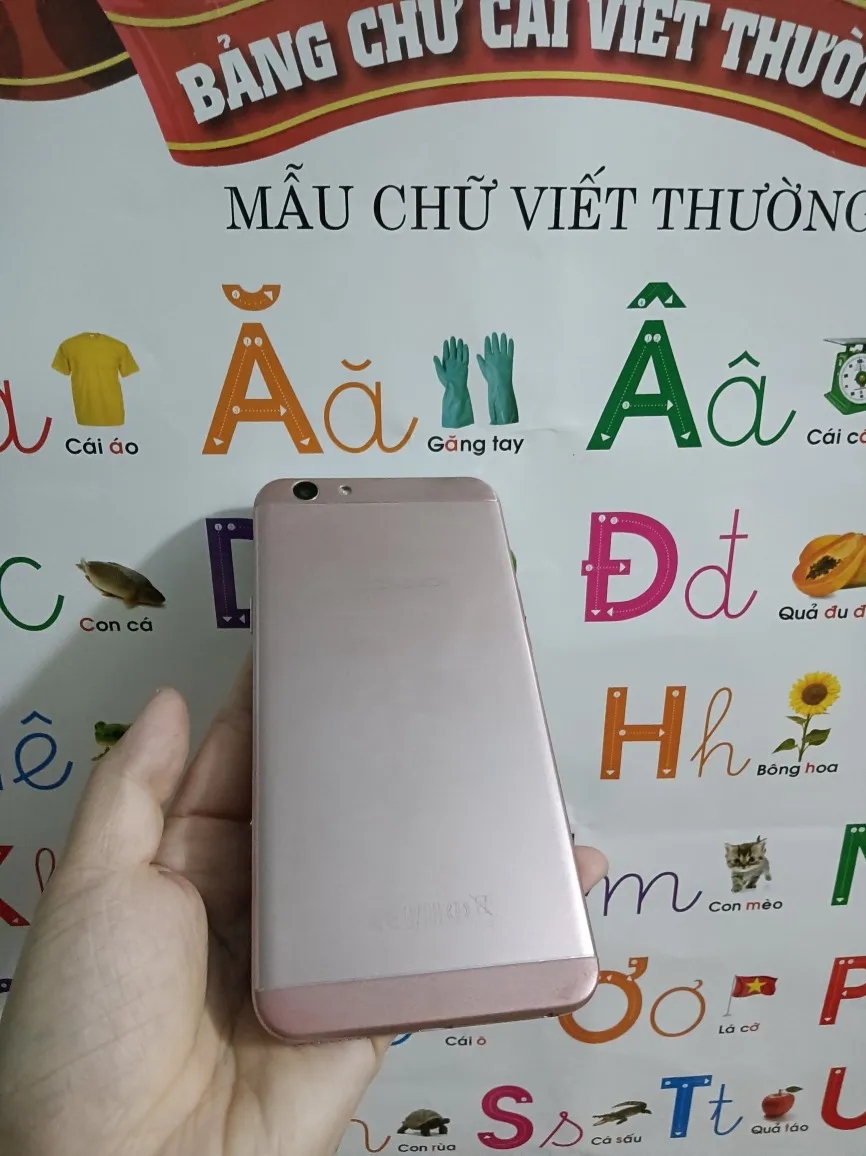 BẢNG CHỮ CÁI VIẾT
MẪU CHỮ VIẾT THƯỜNG
Cái áo
Ă ă
Găng tay
Â â
Cái
c
Con cá
Đ đ
Quả đu đ
ê
H h
Bông hoa
m
Con mèo
Ơ ơ
Lá cờ
P
Cái ô
Con rùa
S s
Cá sấu
T t
Quả táo